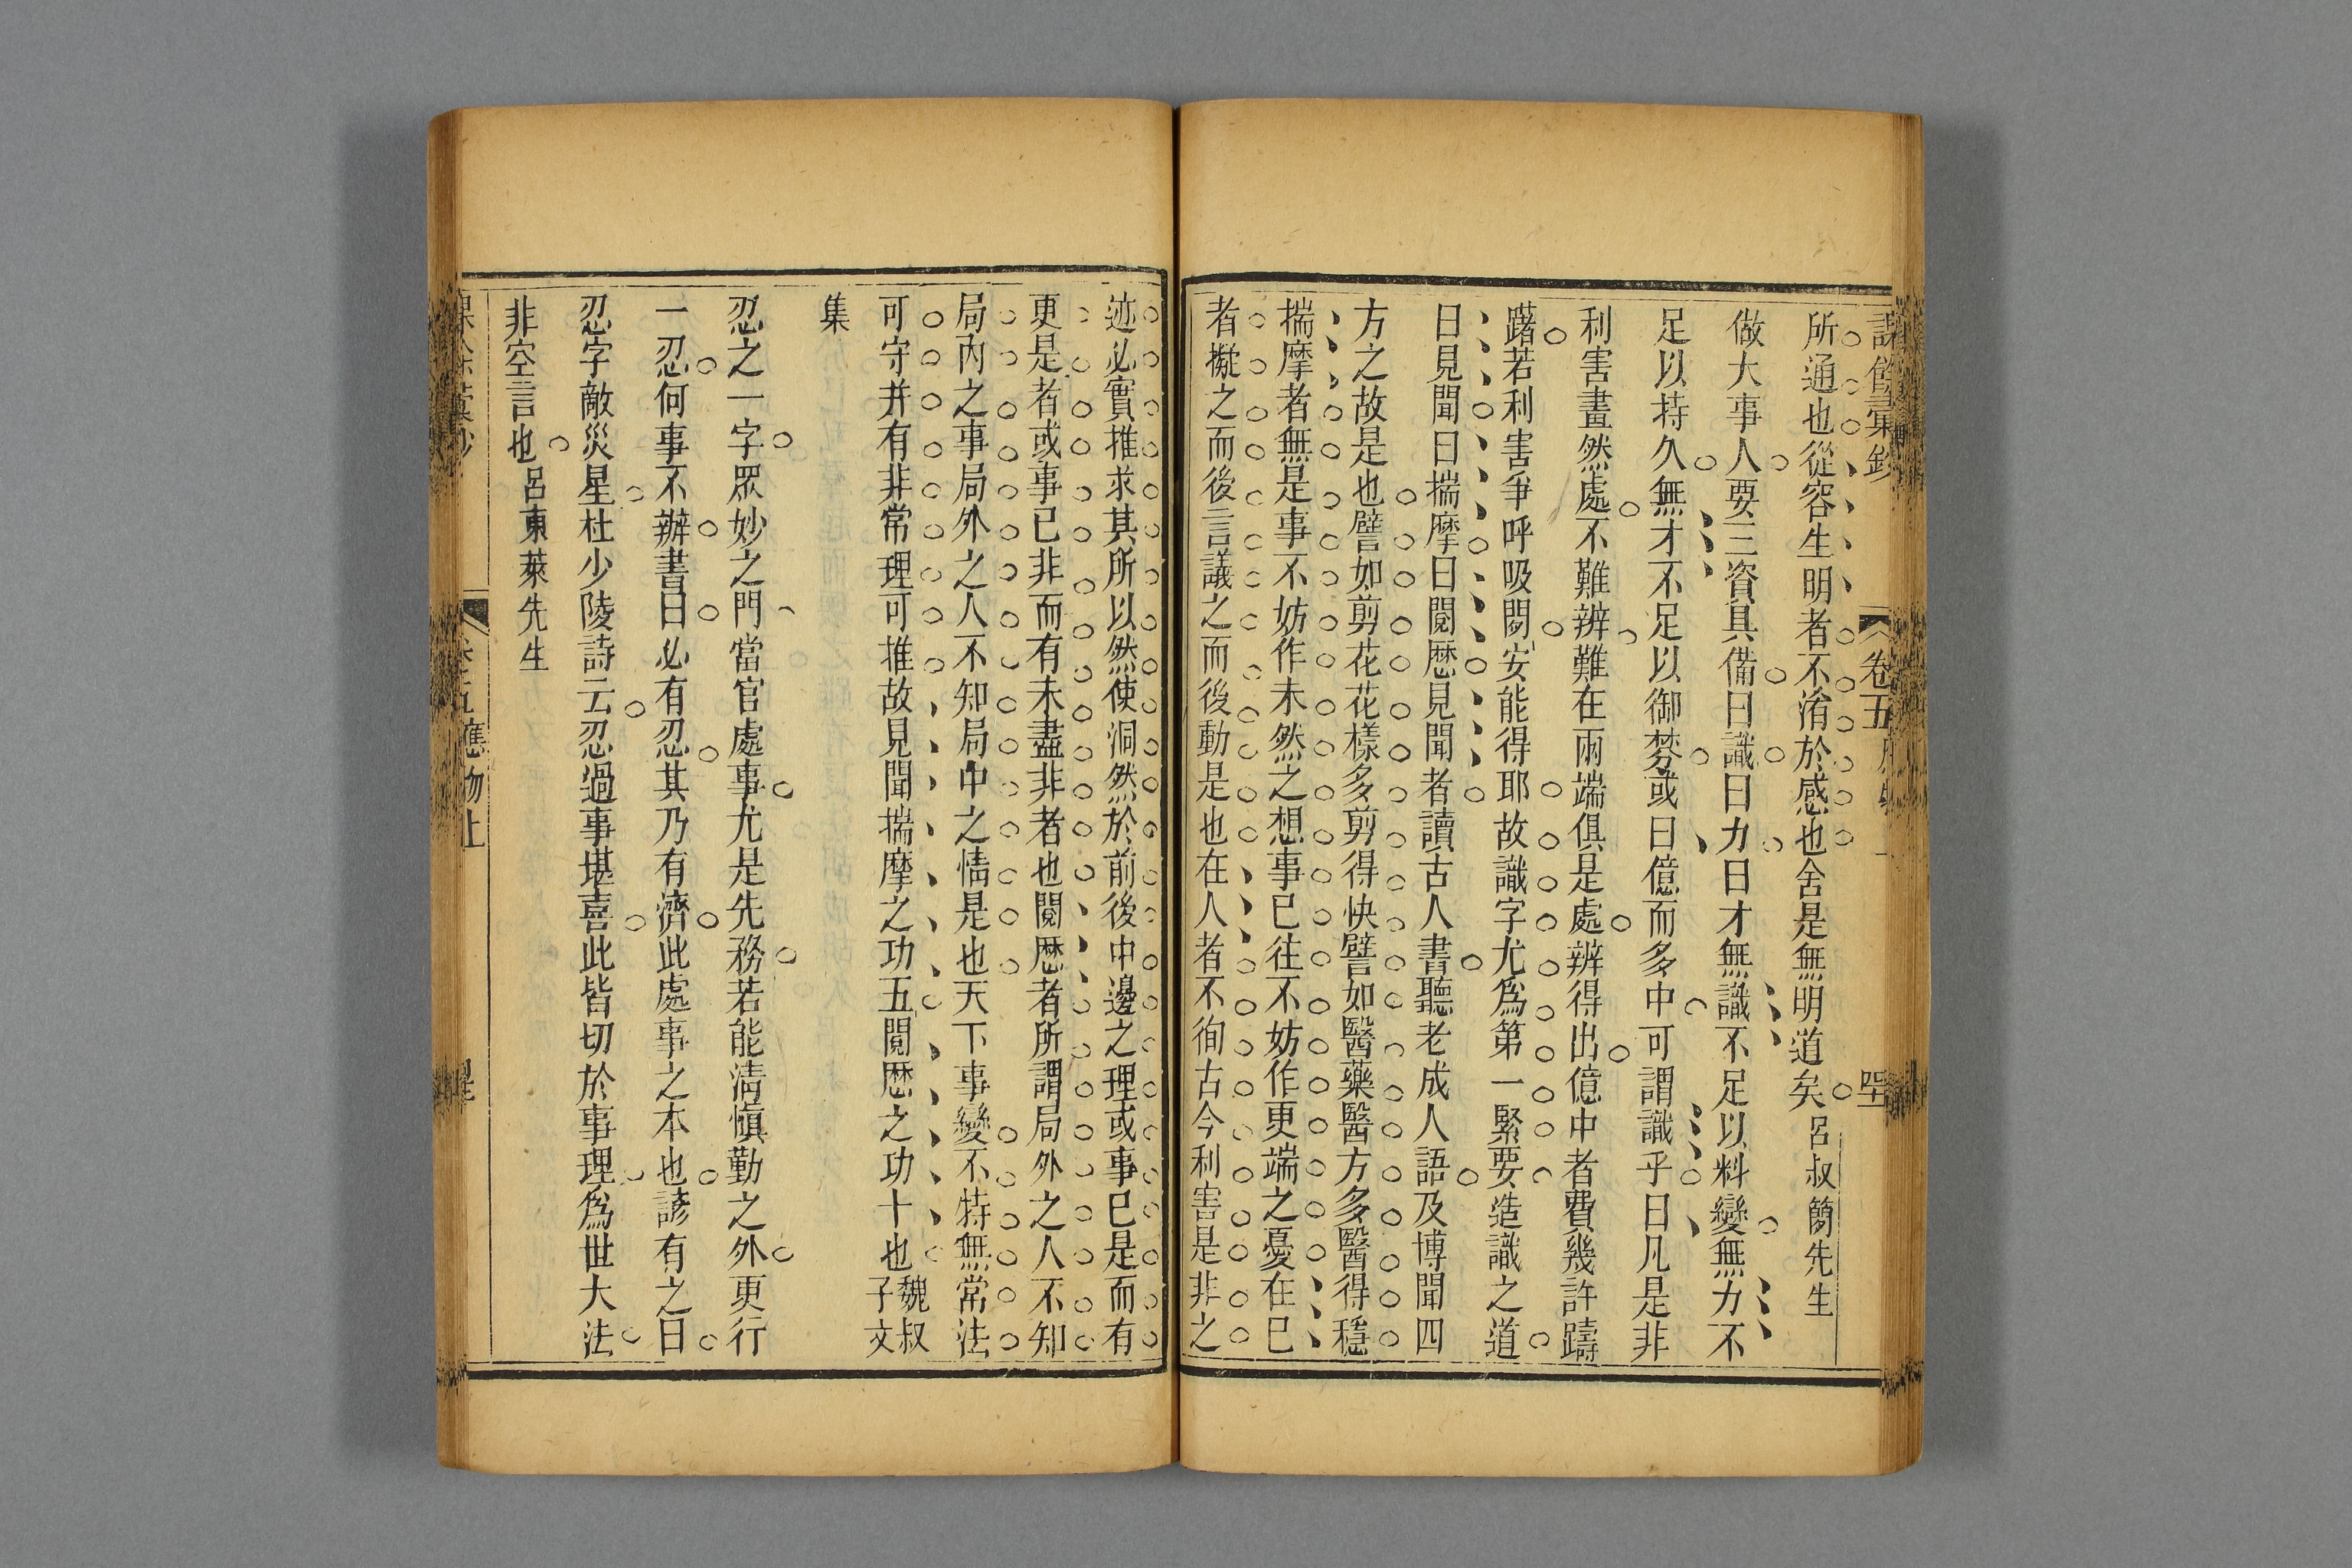 卷五
所通也從容生明者不淆於感也舍是無明道矣呂叔簡先生
做大事人要三資具備曰識曰力曰才無識不足以料變無力不
足以持久無才不足以御棼或曰億而多中可謂識乎曰凡是非
利害畫然處不難辨難在兩端俱是處辨得出億中者費幾許躊
躇若利害爭呼吸閒安能得耶故識字尤爲第一緊要造識之道
曰見聞曰揣摩曰閱歷見聞者讀古人書聽老成人語及博聞四
方之故是也譬如剪花花樣多剪得快譬如醫藥醫方多醫得穩
揣摩者無是事不妨作未然之想事已往不妨作更端之憂在已
者擬之而後言議之而後動是也在人者不徇古今利害是非之
迹必實推求其所以然使洞然於前後中邊之理或事已是而有
更是者或事已非而有未盡非者也閱歷者所謂局外之人不知
局內之事局外之人不知局中之情是也天下事變不特無常法
可守并有非常理可推故見聞揣摩之功五閱歷之功十也魏叔子文
集
忍之一字眾妙之門當官處事尤是先務若能清愼勤之外更行
一忍何事不辦書曰必有忍其乃有濟此處事之本也諺有之曰
忍字敵災星杜少陵詩云忍過事堪喜此皆切於事理爲世大法
非空言也呂東萊先生
應物上